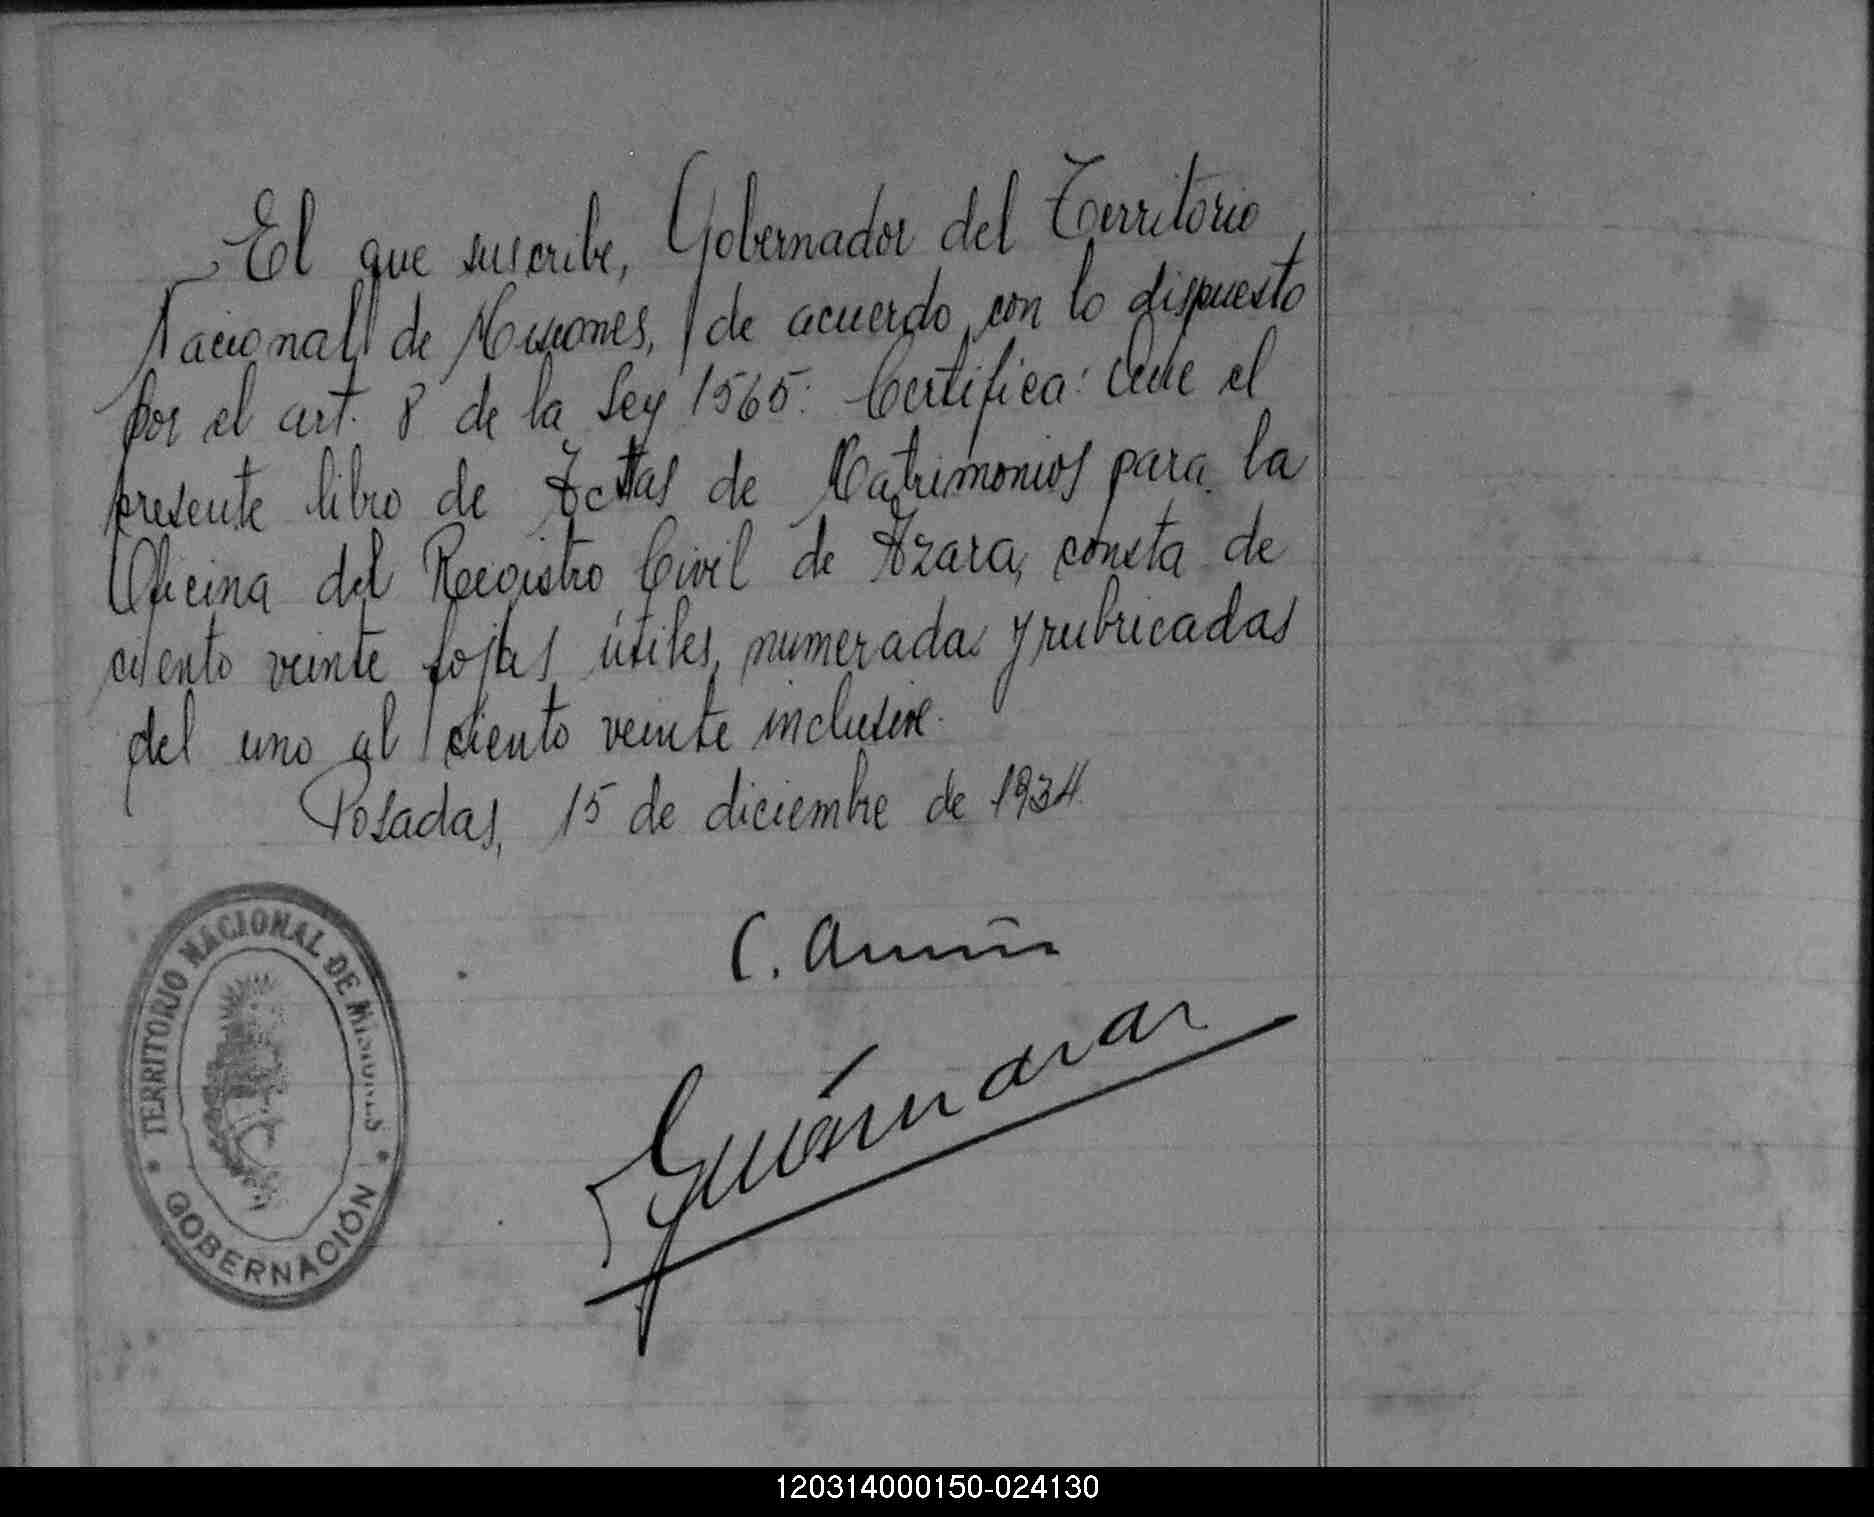 El que suscribe, Gobernador del Territorio
Nacional de Misiones, de acuerdo con lo dispuesto
por el art. 8 de la Ley 1565: Certifica: Que el
presente libro de Actas de Matrimonios para la
Oficina del Registro Civil de Azara, consta de
ciento veinte fojas útiles, numeradas y rubricadas
del uno al ciento veinte inclusive.
Posadas, 15 de diciembre de 1934.
C. 
TERRITORIO NACIONAL DE MISIONES
GOBERNACIÓN
120314000150-024130